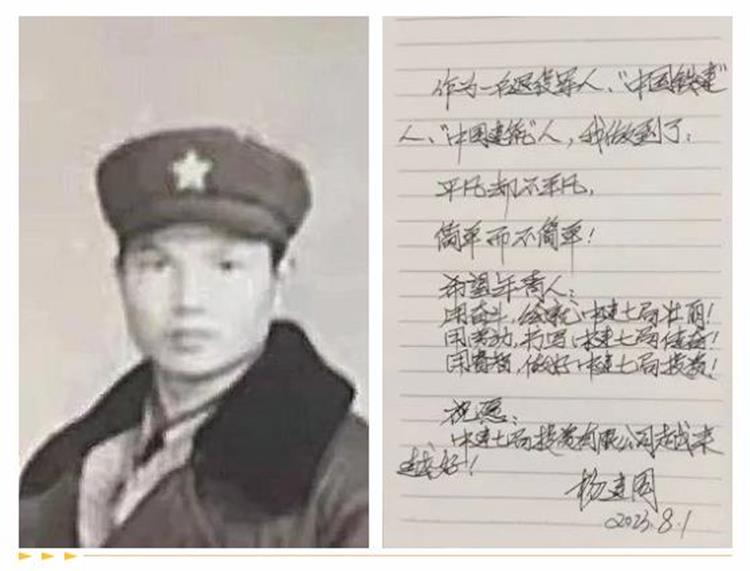 作为一名退役军人、“中国铁建”
人、“中国建筑”人，我做到了：
平凡却不平凡，
简单而不简单！
希望年青人：
用奋斗，绘就中建七局壮丽！
用劳动，书写中建七局佳音！
用智慧，做好中建七局投资！
祝愿：
中建七局投资有限公司越来
越好！
杨建国
2023.8.1